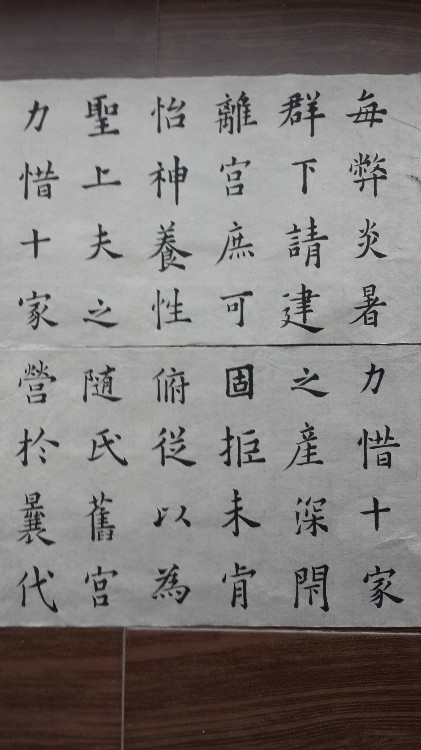 每弊炎暑
群下請建
離宮庶可
怡神養性
聖上夫之
力惜十家
力惜十家
之産深閇
固拒未肯
俯從以為
随氏舊宮
營於曩代